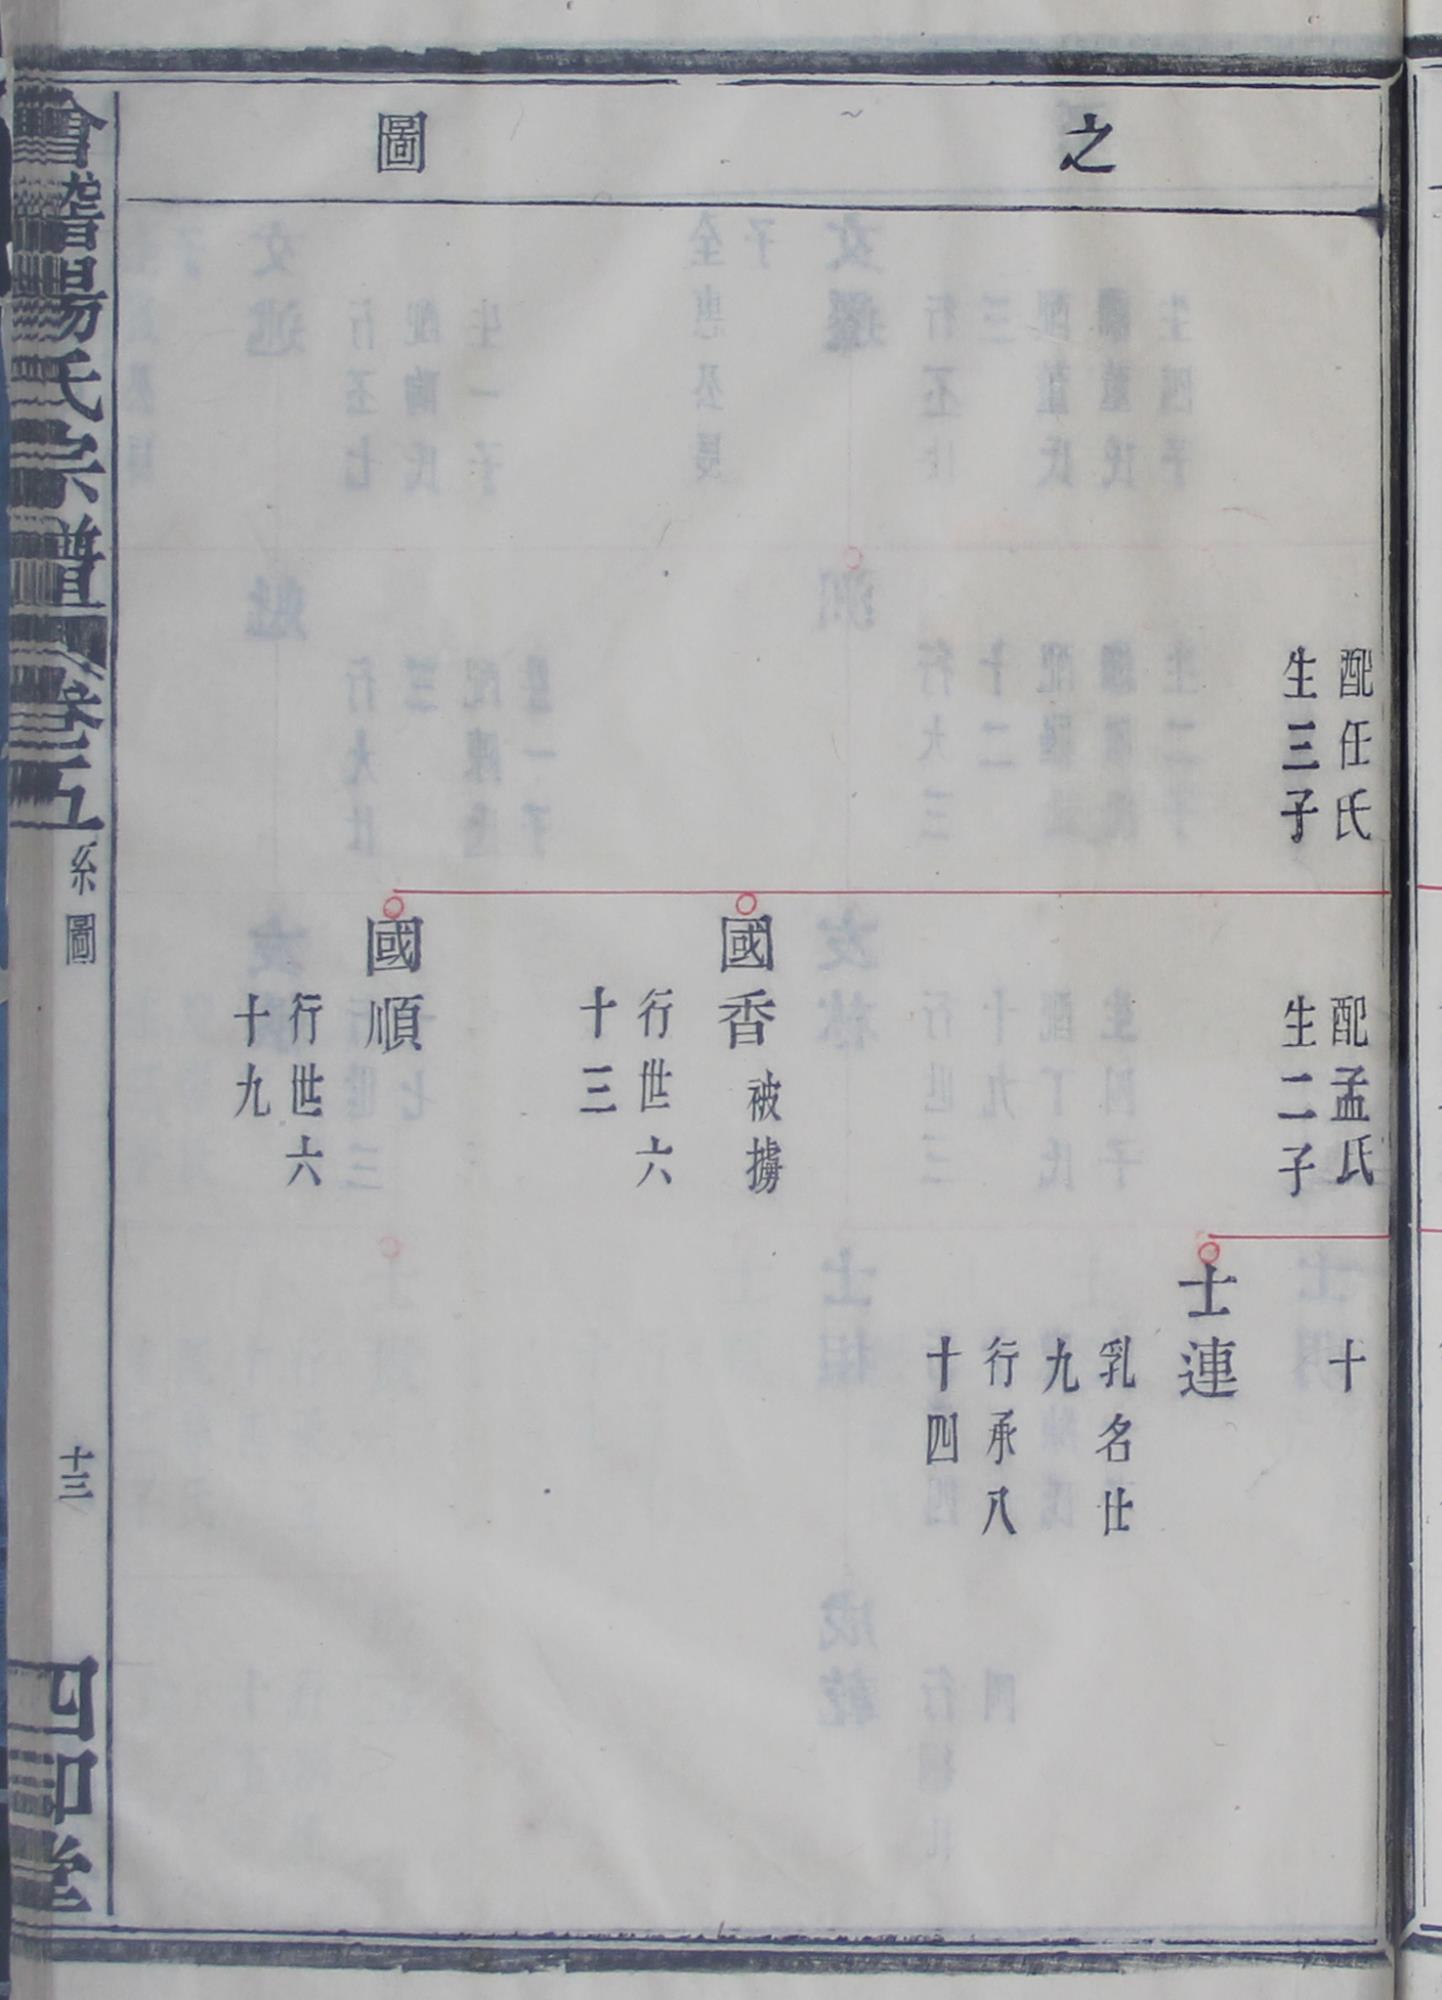 之
圖
配任氏
生三子
配孟氏
生二子
十
士連
乳名仕
九
行承八
十四
國香
被擄
行世六
十三
國順
行世六
十九
會稽
氏宗譜
卷五
系圖
十三
四知堂